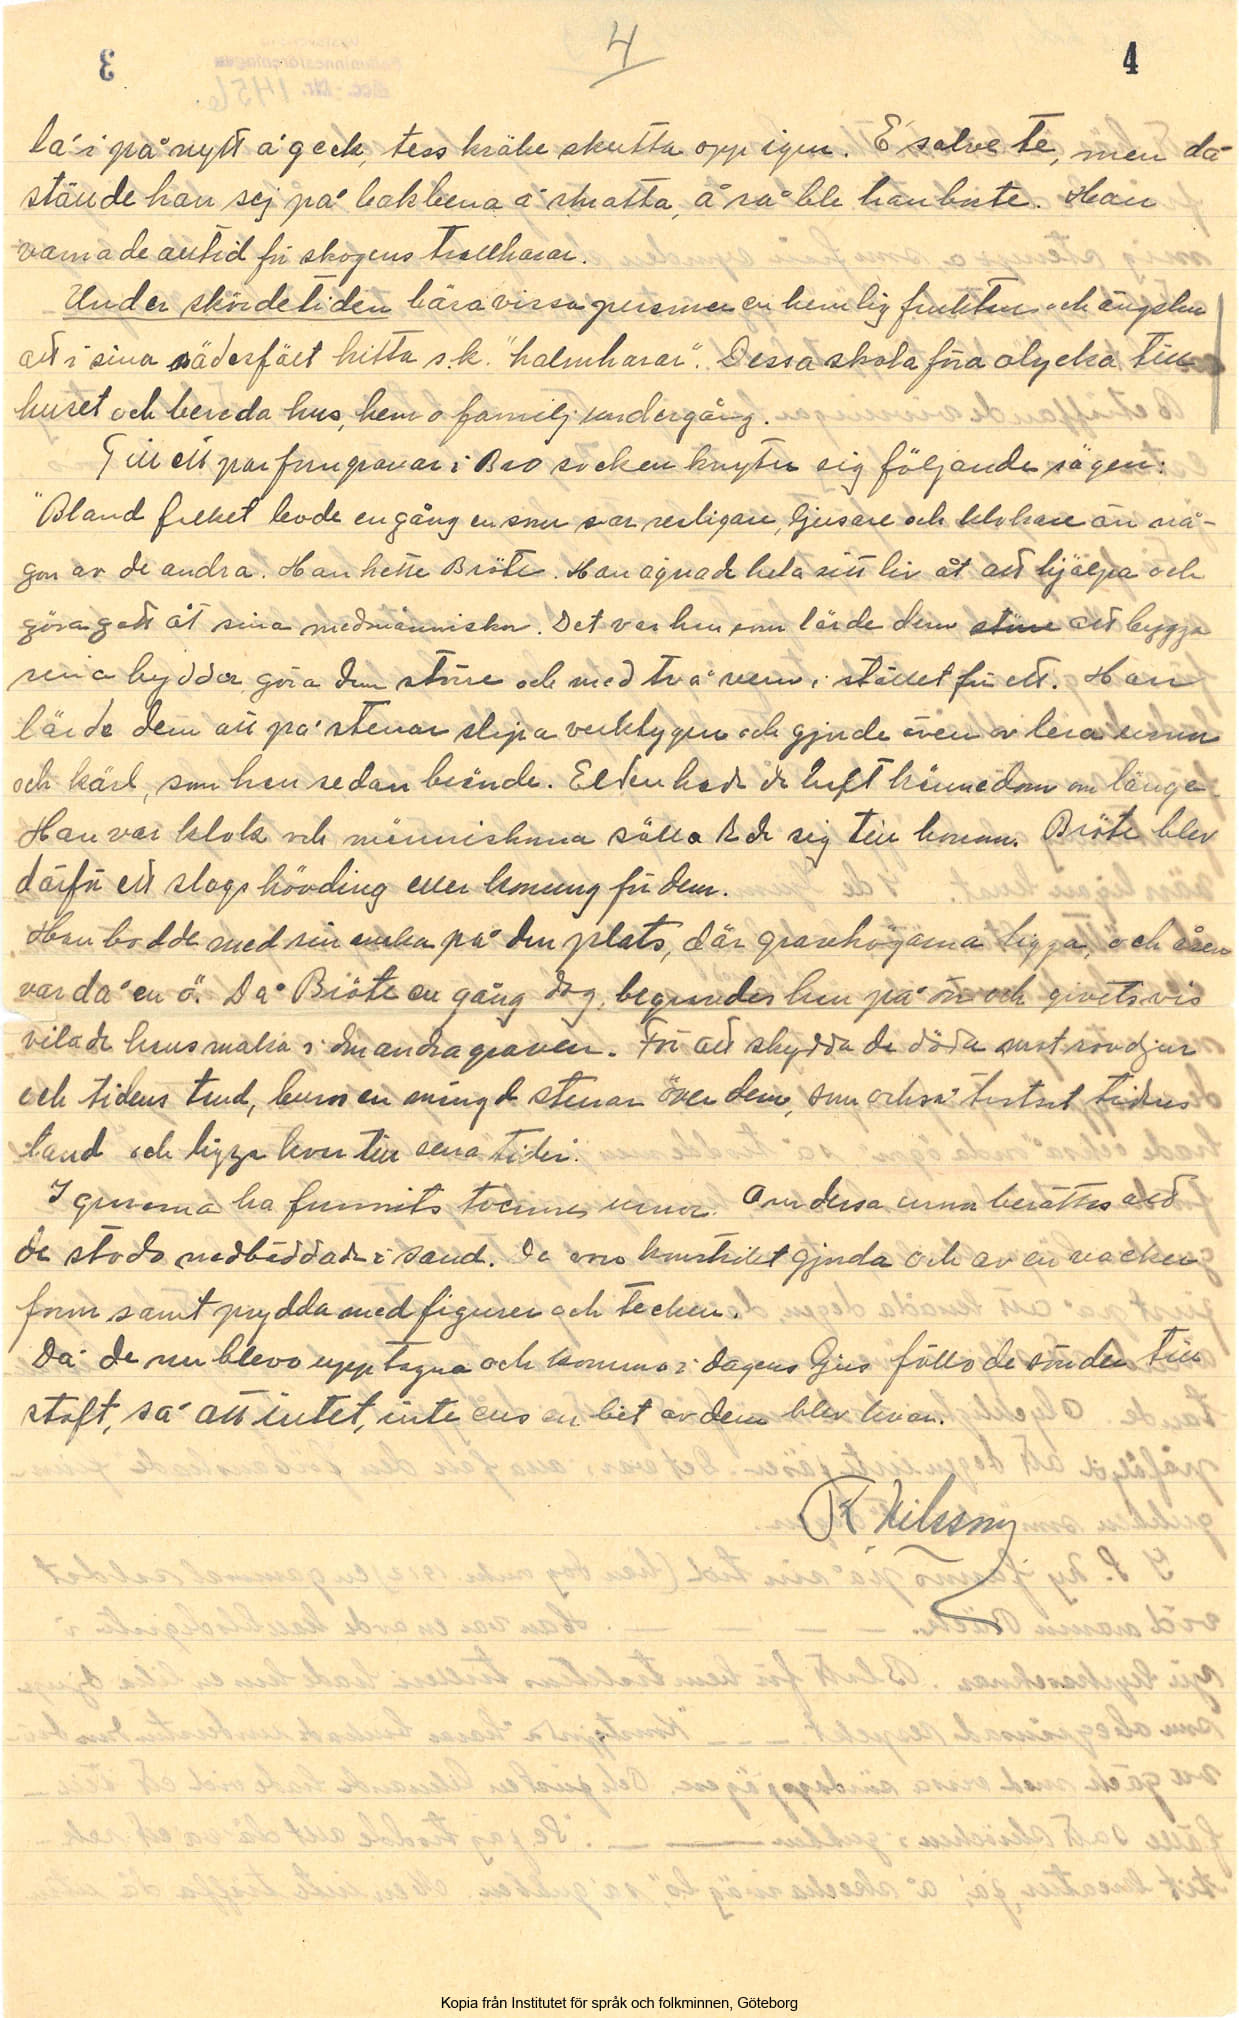 4
4
la i på nytt å geck, tess kräke skutta opp igen. E' salve te, men då
stånde han sej på bakbena å skratta, å så ble han borte. Han
varnade alltid för skogens trollharar.
Under skördetiden bära vissa personer en hemlig fruktan och ängslan
att i sina sädesfält hitta s.k. "halmharar". Dessa skola föra olycka till
huset och bereda hus, hem o familj undergång.
Till ett par forngravar i Bro socken knyter sig följande sägen:
"Bland folket levde en gång en som var verligare, ljusare och klokare än nå-
gon av de andra. Han hette Bröte. Han ägnade hela sitt liv åt att hjälpa och
göra gott åt sina medmänniskor. Det var han som lärde dem större att bygga
sina hyddor, göra dem större och med två rum i stället för ett. Han
lärde dem att på stenar slipa verktygen och gjorde även av lera urnor
och kärl, som han sedan brände. Elden hade de haft kännedom om länge.
Han var klok och människorna sällade sig till honom. Bröte blev
därför ett slags hövding eller konung för dem.
Han bodde med sin maka på den plats, där gravhögarna ligga, och åsen
var då en ö. Då Bröte en gång dog, begravdes han på ön och givetvis
vilade hans maka i den andra graven. För att skydda de döda mot rovdjur
och tidens tand, buros en mängd stenar över dem, som också trotsat tidens
tand och ligga kvar till sena tider.
I gravarna ha funnits tvenne urnor. Om dessa urnor berättas att
de stodo nedbäddade i sand. De voro konstrikt gjorda och av en vacker
form samt prydda med figurer och tecken.
Då de nu blevo upptagna och kommo i dagens ljus föllo de sönder till
stoft, så att intet, inte ens en bit av dem blev kvar.
K Nilsson
Kopia från Institutet för språk och folkminnen, Göteborg